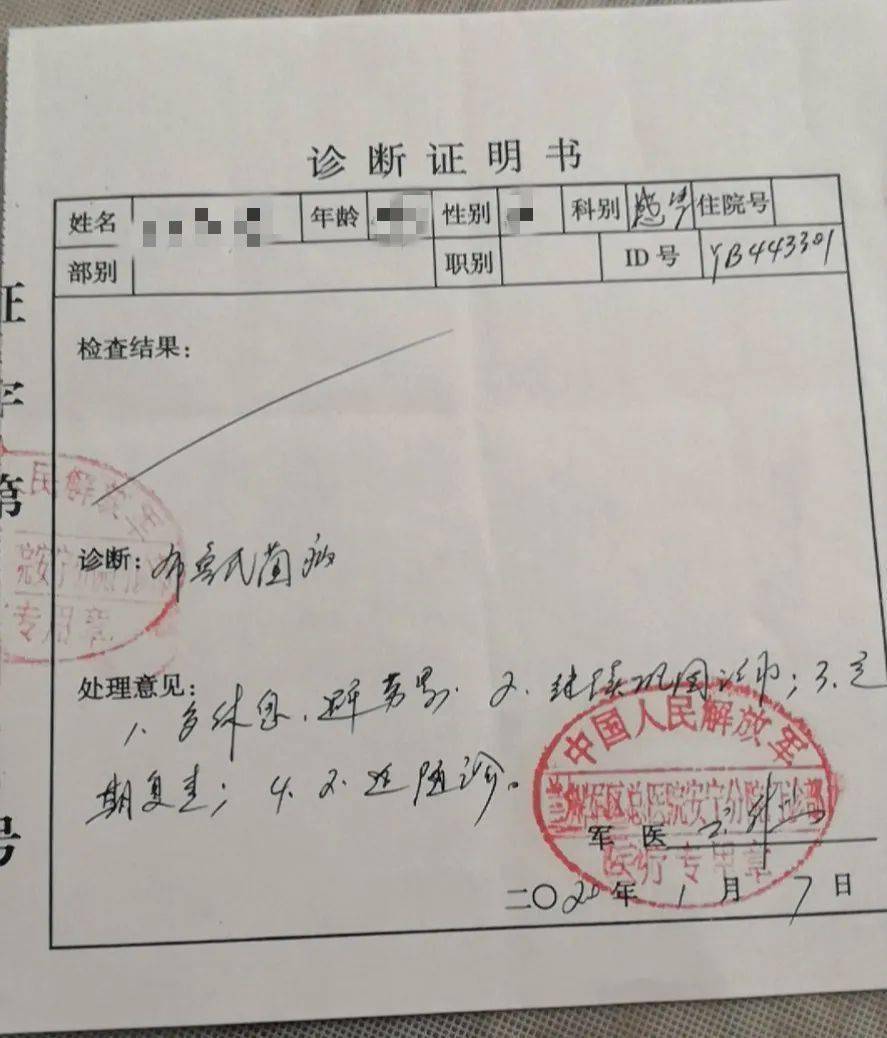 诊断证明书
姓名 年龄 性别 科别 感染 住院号
部别 职别 ID号 YB443301
检查结果:
诊断: 布鲁氏菌病
处理意见:
1、多休息、避免劳累、2、继续巩固治疗;3、定
期复查;4、不适随诊。
中国人民解放军
区总医院安宁分院门诊部
医疗专用章
军医
二〇20年1月7日
证
字
第
号
民解放军
总安宁分
专用章